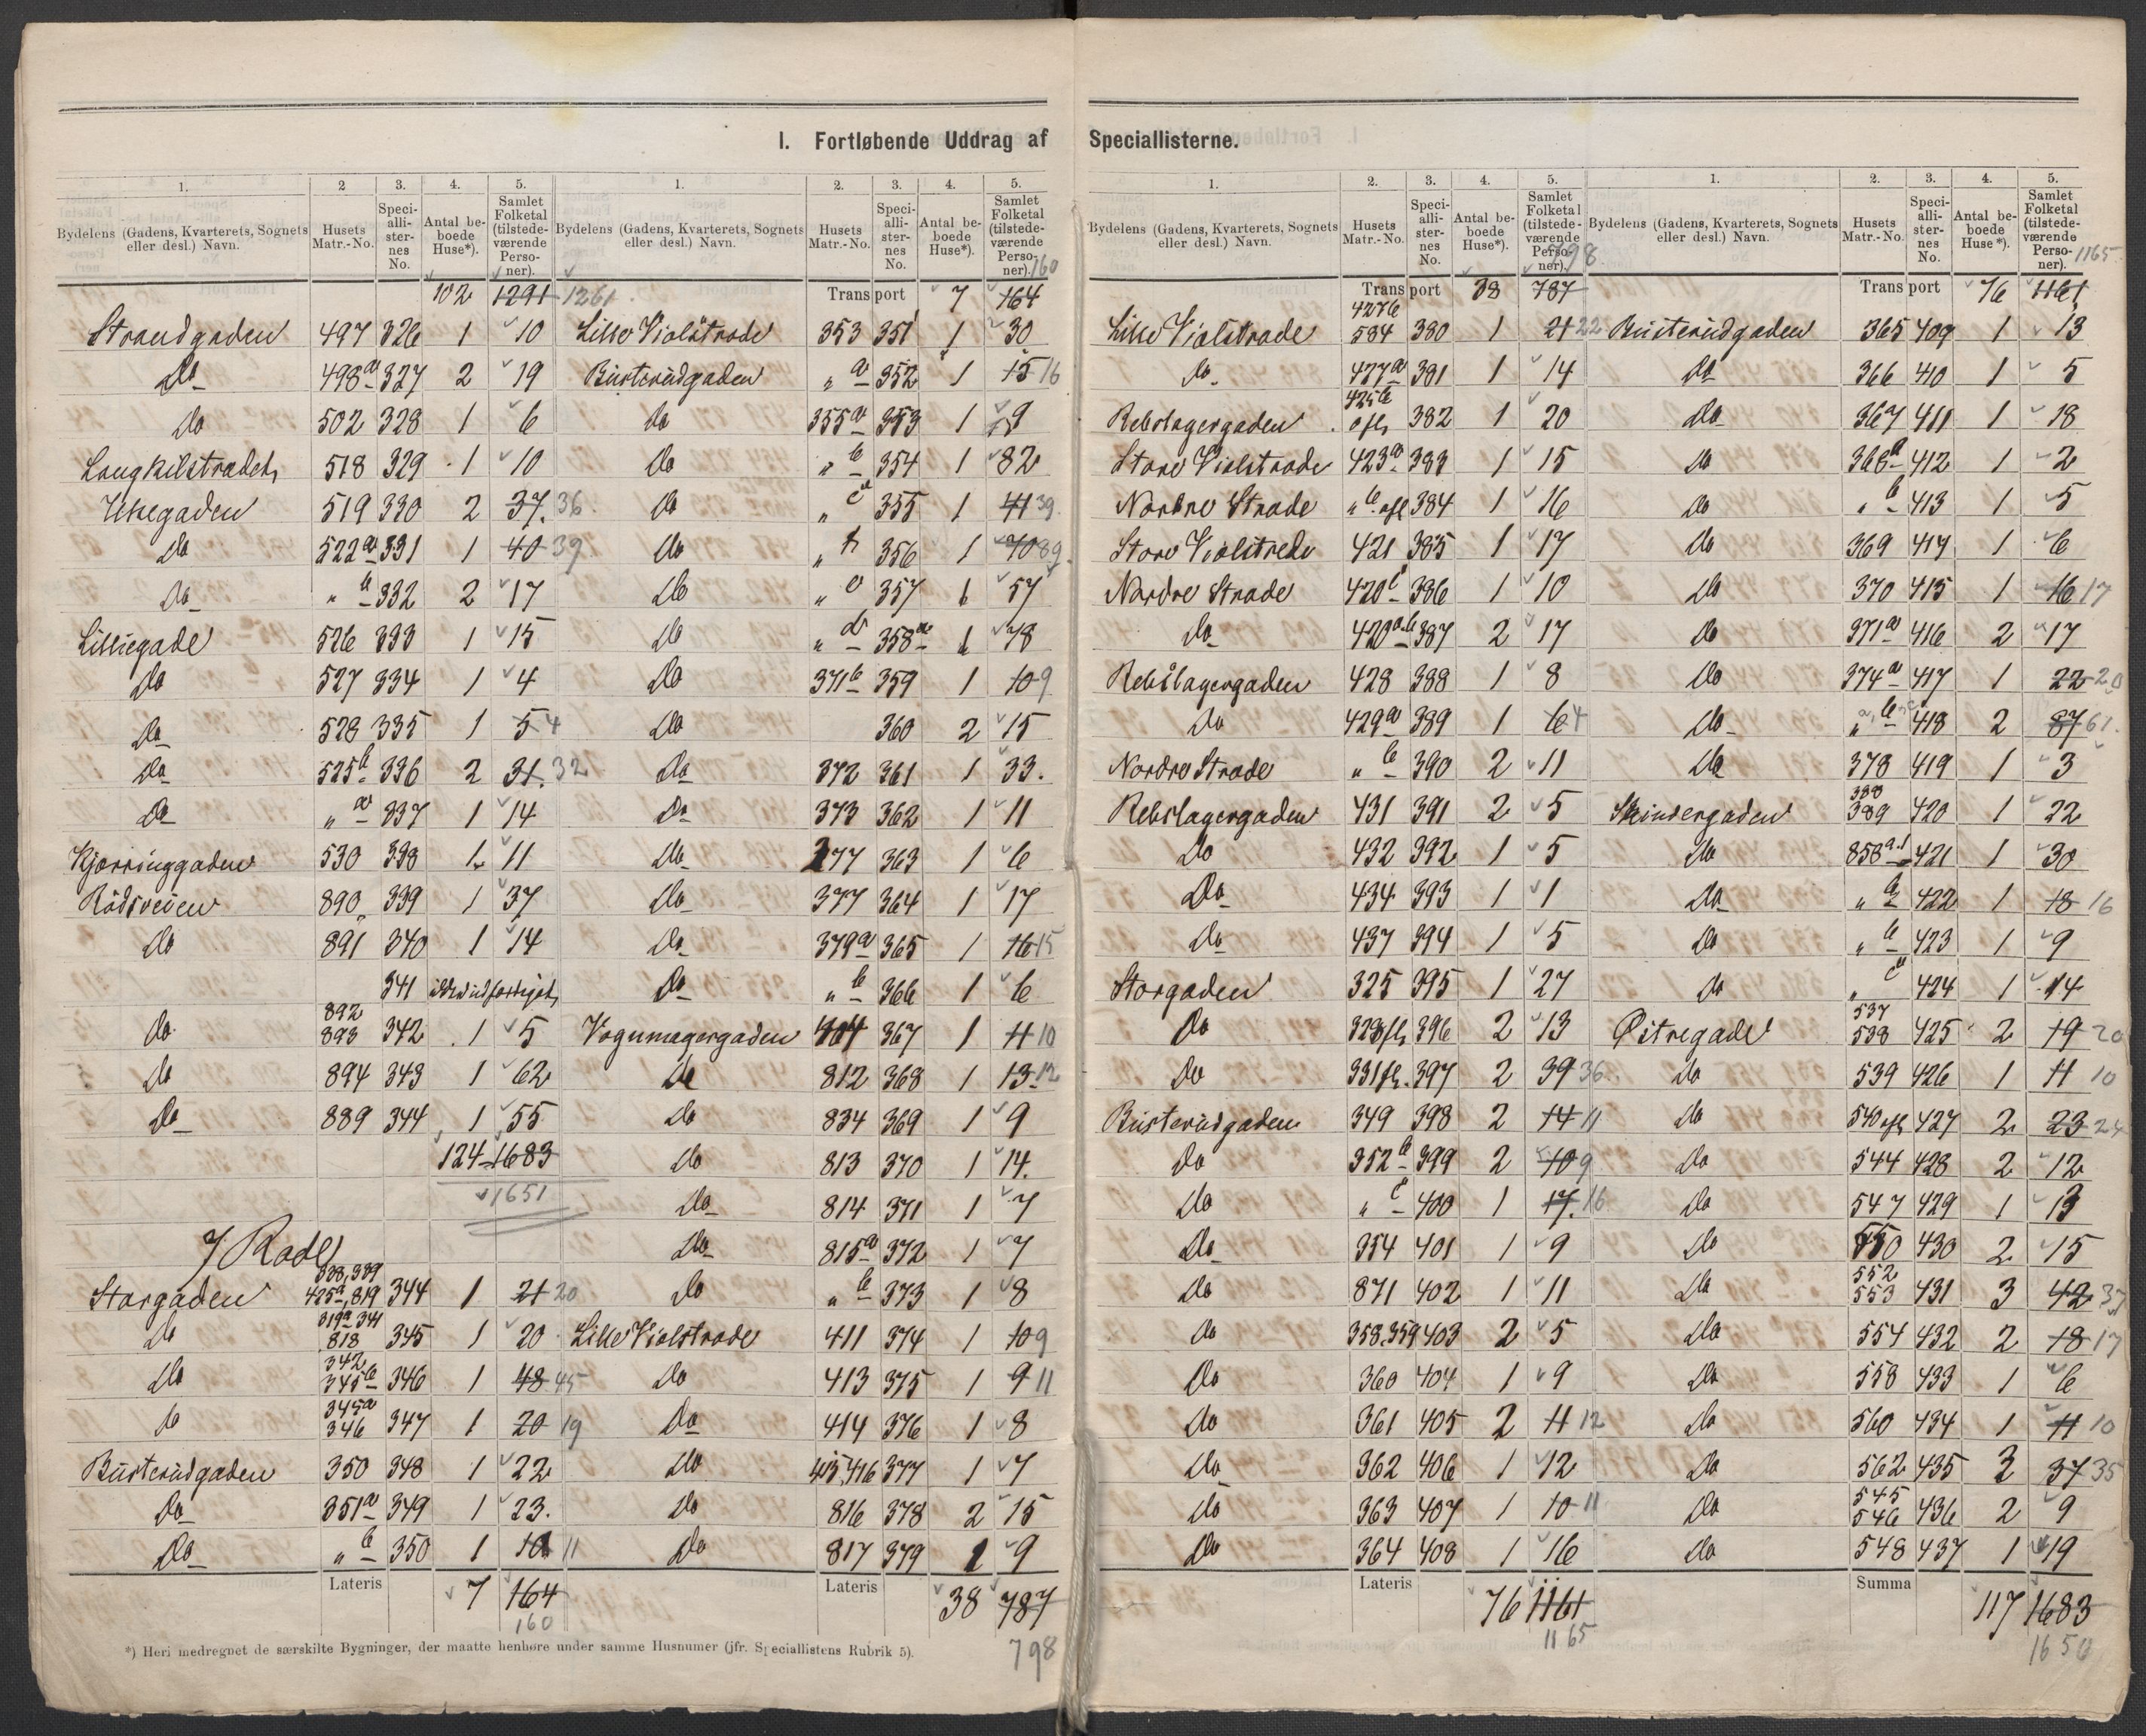 I. Fortløbende Uddrag af Speciallisterne.
1. 2 3. 4. 5.
Bydelens (Gadens, Kvarterets, Sognets eller desl.) Navn. Husets Matr.-No. Speciallisternes No. Antal beboede Huse*). Samlet Folketal (tilstedeværende Personer).
102 1291 1261
Strandgaden 497 326 1 10
Do 498a 327 2 19
Do 502 328 1 6
Langkilstrædet 518 329 1 10
519 330 2 37 36
Do 522a 331 1 40 39
Do " b 332 2 17
Lilliegade 526 333 1 15
Do 527 334 1 4
Do 528 335 1 5 4
Do 525b 336 2 31 32
Do " a 337 1 14
Kjørringgaden 530 338 1 11
Rådsveien 890 339 1 37
Do 891 340 1 14
341
Do 892 893 342 1 5
Do 894 343 1 62
Do 889 344 1 55
124 1683
1651
J. Rode
Storgaden 338,339 425a,819 344 1 21 20
Do 819a 341 818 345 1 20
Do 342 345b 346 1 48 45
Do 345a 346 347 1 20 19
Busterudgaden 350 348 1 22
Do 351a 349 1 23.
Do " b 350 1 10 11
Lateris 7 164
160
1. 2. 3. 4. 5.
Bydelens (Gadens, Kvarterets, Sognets eller desl.) Navn. Husets Matr.-No. Speciallisternes No. Antal beboede Huse*). Samlet Folketal (tilstedeværende Personer).
160
Transport 7 164
Lille Violstræde 353 351 1 30
Busterudgaden " a 352 1 15 16
Do 355a 353 1 9
Do " b 354 1 82
Do " c 355 1 41 39
Do " f 356 1 70 89
Do " e 357 1 57
Do " d 358 1 78
Do 371b 359 1 10 9
Do 360 2 15
Do 372 361 1 33.
Do 373 362 1 11
Do 377 363 1 6
Do 377 364 1 17
Do 379a 365 1 16 15
Do " b 366 1 6
Vognmagergaden 404 367 1 11 10
Do 812 368 1 13 12
Do 834 369 1 9
Do 813 370 1 14.
Do 814 371 1 7
Do 815a 372 1 7
Do " b 373 1 8
Lille Violstræde 411 374 1 10 9
Do 413 375 1 9 11
Do 414 376 1 8
Do 415,416 377 1 7
Do 816 378 2 15
Do 817 379 1 9
Lateris 38 787
798
*) Heri medregnet de særskilte Bygninger, der maatte henhøre under samme Husnumer (jfr. Speciallistens Rubrik 5).
1. 2. 3. 4. 5.
Bydelens (Gadens, Kvarterets, Sognets eller desl.) Navn. Husets Matr.-No. Speciallisternes No. Antal beboede Huse*). Samlet Folketal (tilstedeværende Personer).
798
Transport 38 787
Lille Violstræde 427b 584 380 1 21 22
Do 427a 381 1 14
Rebslagergaden 425b ofl. 382 1 20
Store Violstræde 423a 383 1 15
Nordre Stræde " b ofl 384 1 16
Store Violstræde 421 385 1 17
Nordre Stræde 420c 386 1 10
Do 420a.b 387 2 17
Rebslagergaden 428 388 1 8
Do 429a 389 1 6 4
Nordre Stræde " b 390 2 11
Rebslagergaden 431 391 2 5
Do 432 392 1 5
Do 434 393 1 1
Do 437 394 1 5
Storgaden 325 395 1 27
Do 323 fl. 396 2 13
Do 331 fl. 397 2 39 36
Busterudgaden 349 398 2 14 11
Do 352b 399 2 10 9
Do " c 400 1 17. 16
Do 354 401 1 9
Do 871 402 1 11
Do 358,359 403 2 5
Do 360 404 1 9
Do 361 405 2 11 12
Do 362 406 1 12
Do 363 407 1 10 11
Do 364 408 1 16
Lateris 76 1161
1165
1. 2. 3. 4. 5.
Bydelens (Gadens, Kvarterets, Sognets eller desl.) Navn. Husets Matr.-No. Speciallisternes No. Antal beboede Huse*). Samlet Folketal (tilstedeværende Personer).
1165
Transport 76 1161
Busterudgaden 365 409 1 13
Do 366 410 1 5
Do 367 411 1 18
Do 368a 412 1 2
Do " b 413 1 5
Do 369 414 1 6
Do 370 415 1 16 17
Do 371a 416 2 17
Do 374a 417 1 22 20
Do " b 418 2 87 61
Do 378 419 1 3
Skindergaden 388 389 420 1 22
Do 858 421 1 30
Do " 422 1 18 16
Do " b 423 1 9
Do " c 424 1 14
Østregade 537 538 425 2 19 20
Do 539 426 1 11 10
Do 540 ofl 427 2 23 24
Do 544 428 2 12
Do 547 429 1 13
Do 550 430 2 15
Do 552 553 431 3 42 37
Do 554 432 2 18 17
Do 558 433 1 6
Do 560 434 1 11 10
Do 562 435 3 37 35
Do 545 546 436 2 9
Do 548 437 1 19
Summa 117 1683
1650